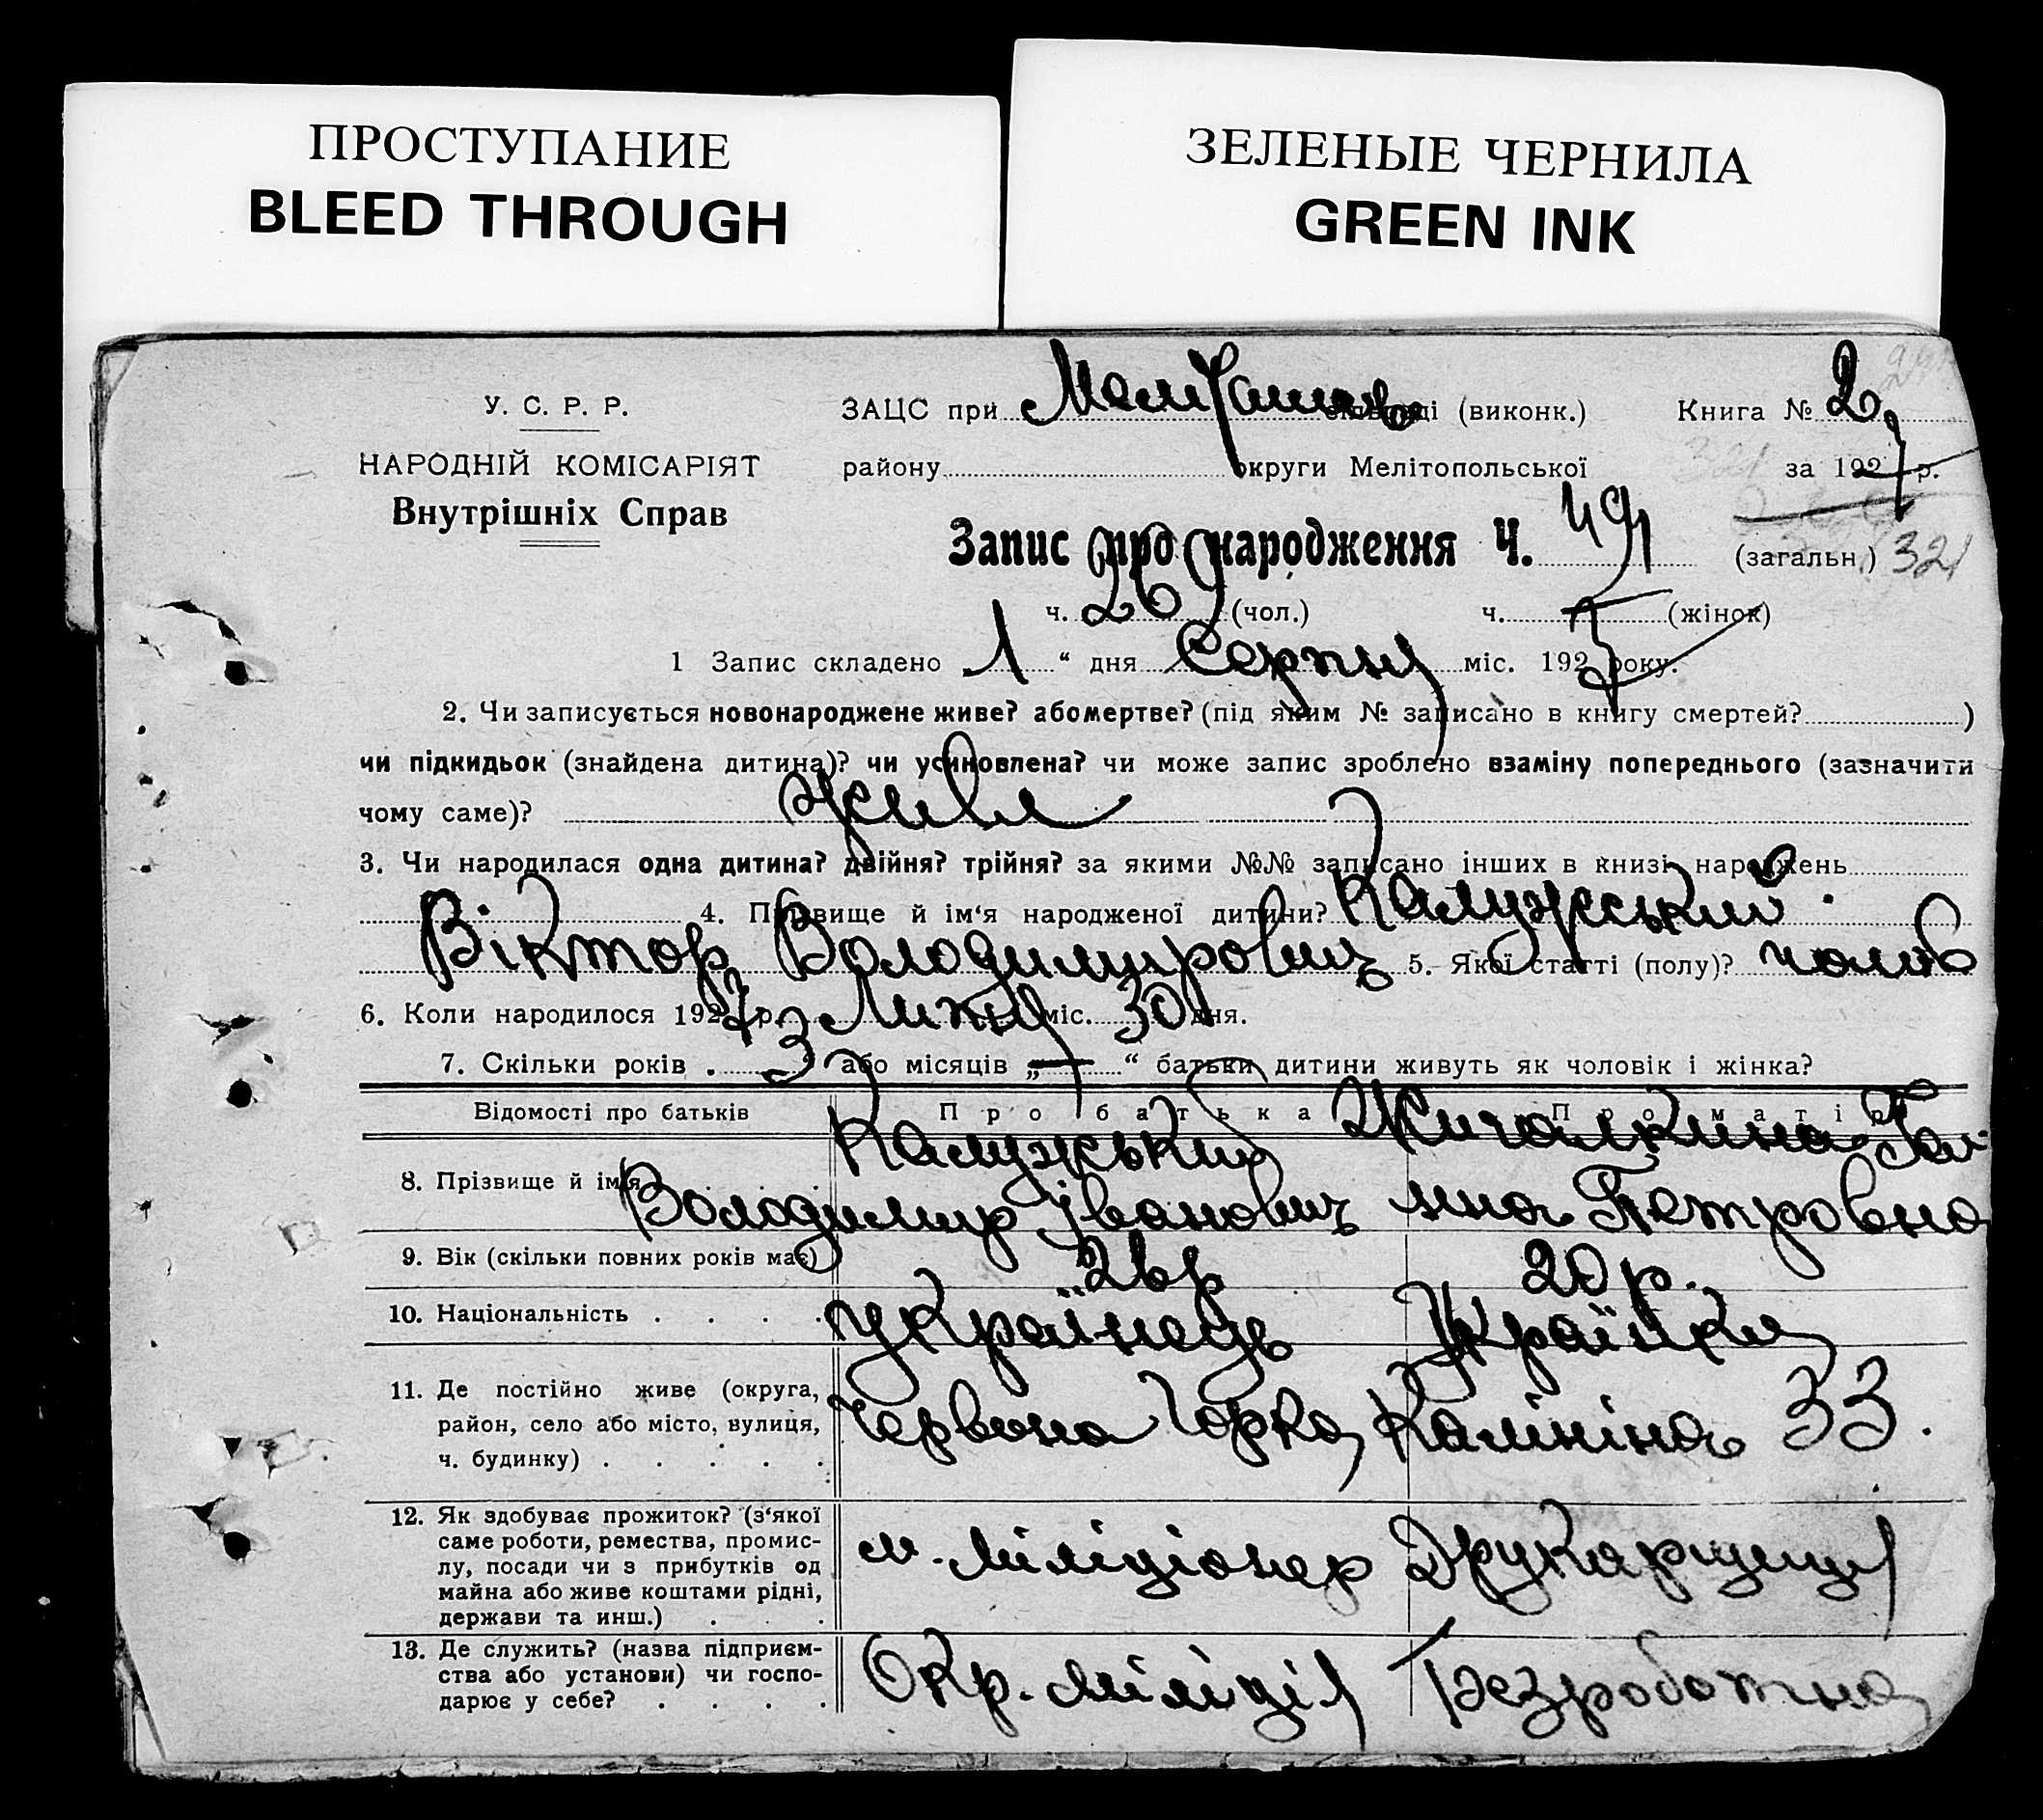 ПРОСТУПАНИЕ
BLEED THROUGH
ЗЕЛЕНЫЕ ЧЕРНИЛА
GREEN INK
У. С. Р. Р.
НАРОДНІЙ КОМІСАРІЯТ
Внутрішніх Справ
ЗАЦС при (виконк.) Книга № 2
району округи Мелітопольської за 1927 р.
Запис про народження Ч. 491 (загальн.) 321
ч. 269 (чол.) ч. (жінок)
1 Запис складено 1 “ дня Серпня міс. 1927 року.
2. Чи записується новонароджене живе? або мертве? (під яким № записано в книгу смертей? )
чи підкидьок (знайдена дитина)? чи усиновлена? чи може запис зроблено взаміну попереднього (зазначити
чому саме)? живе
3. Чи народилася одна дитина? двійня? трійня? за якими №№ записано інших в книзі народжень
4. Прізвище й ім‘я народженої дитини? Калужський
Віктор Володимирович 5. Якої статті (полу)? чолов
6. Коли народилося 1927 р. Липня міс. 30 дня.
7. Скільки років . 3 або місяців „ — “ батьки дитини живуть як чоловік і жінка?
Відомості про батьків Про батька Про матір
8. Прізвище й ім‘я Калужський Жигалкина Гали
Володимир Іванович на Петровна
9. Вік (скільки повних років має) 26 р 20 р.
10. Національність . . . . Українець Українка
11. Де постійно живе (округа,
район, село або місто, вулиця,
ч. будинку) . . . . . Червона Горка, Калініна 33.
12. Як здобуває прожиток? (з‘якої
саме роботи, ремества, промис-
лу, посади чи з прибутків од
майна або живе коштами рідні,
держави та инш.) . . . м. Міліціонер Друкарщиця
13. Де служить? (назва підприєм-
ства або установи) чи госпо-
дарює у себе? . . . . Окр. міліція Безроботна